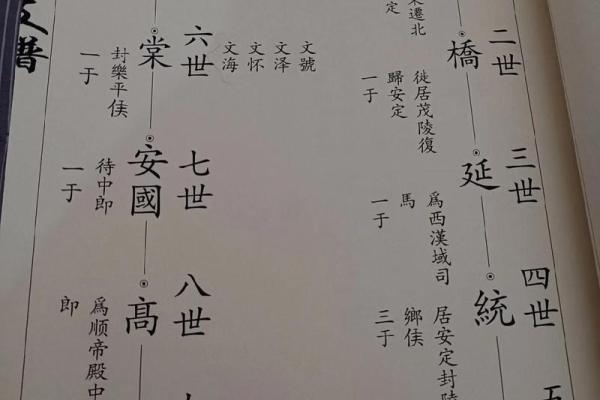 遷北
定
二世
橋
徙居茂陵復
歸安定
一于
三世
延
爲西漢域司
馬
一于
四世
統
居安定封陵
鄉侯
三于
五
文號
文泽
文怀
文海
六世
棠
封樂平侯
一于
七世
安國
待中即
一于
八世
髙
爲顺帝殿中
即
譜